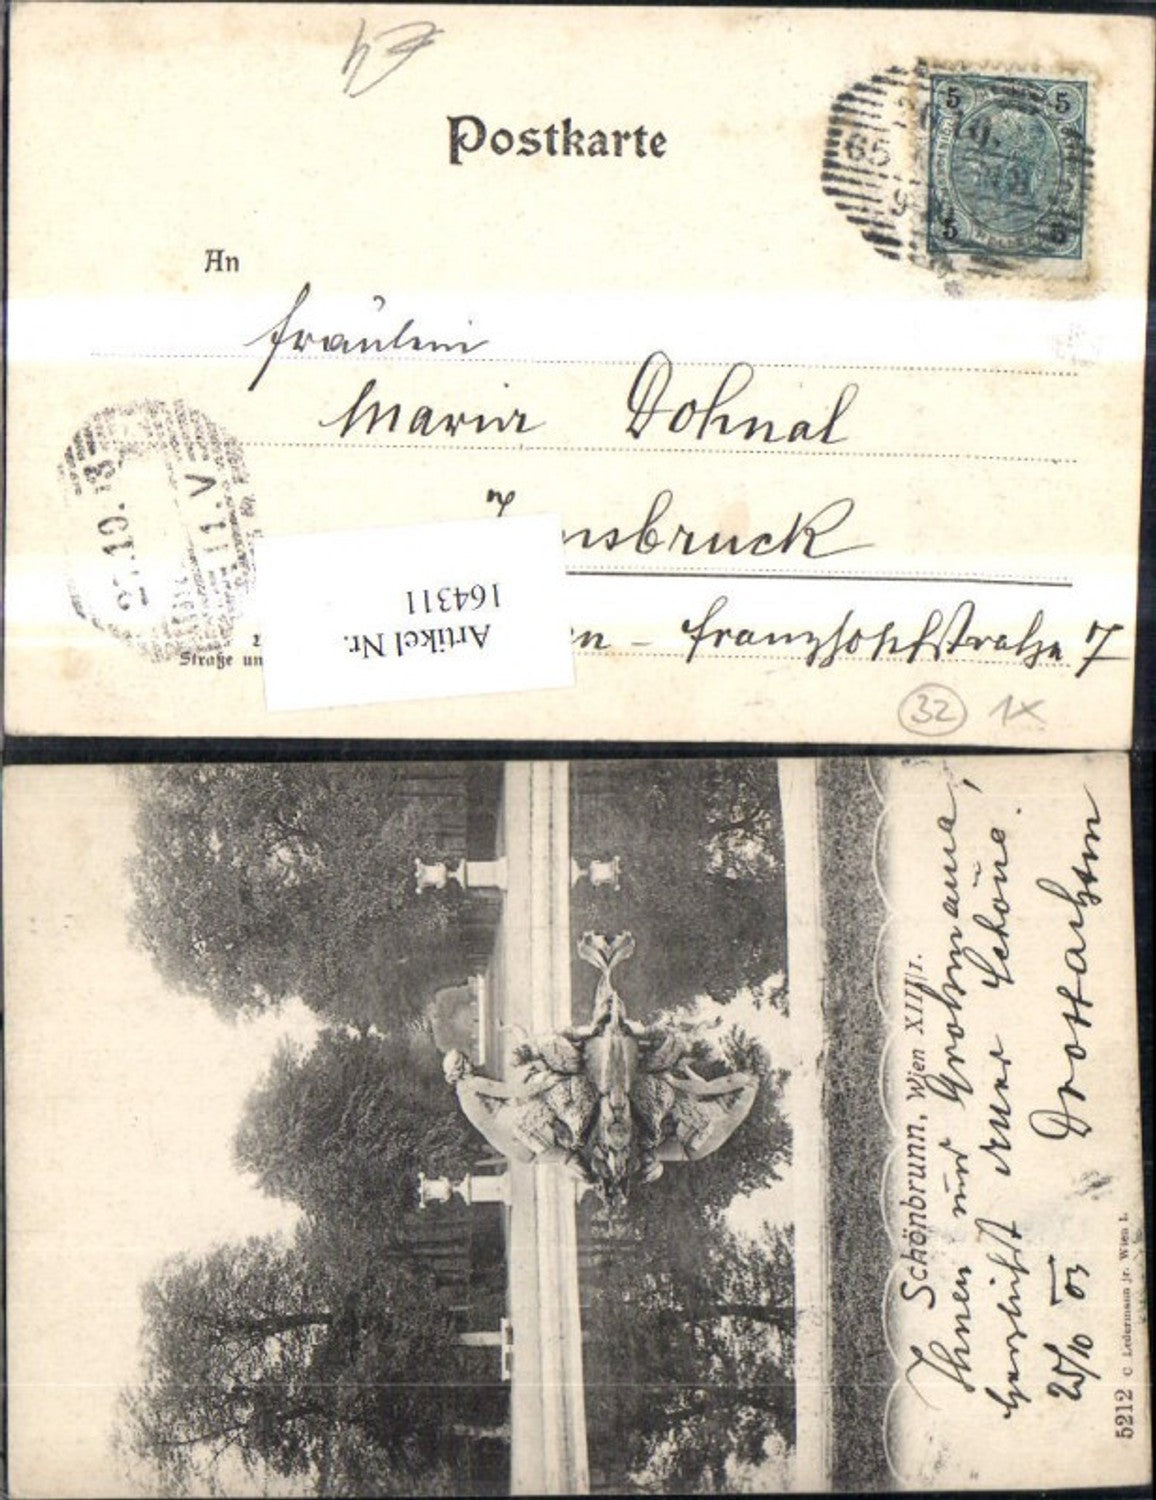 Postkarte
5 5
65
5 5
An
Fräulein
Maria Dohnal
Innsbruck
27.10.
11.V
Artikel Nr.
164311
Straße un
Franz Josefstraße 7
32 1x
Schönbrunn, Wien XIII/1.
Ihnen und Großmama,
herzlichst Ihner Schöne.
25/10 03
5212 C Ledermann jr. Wien I.